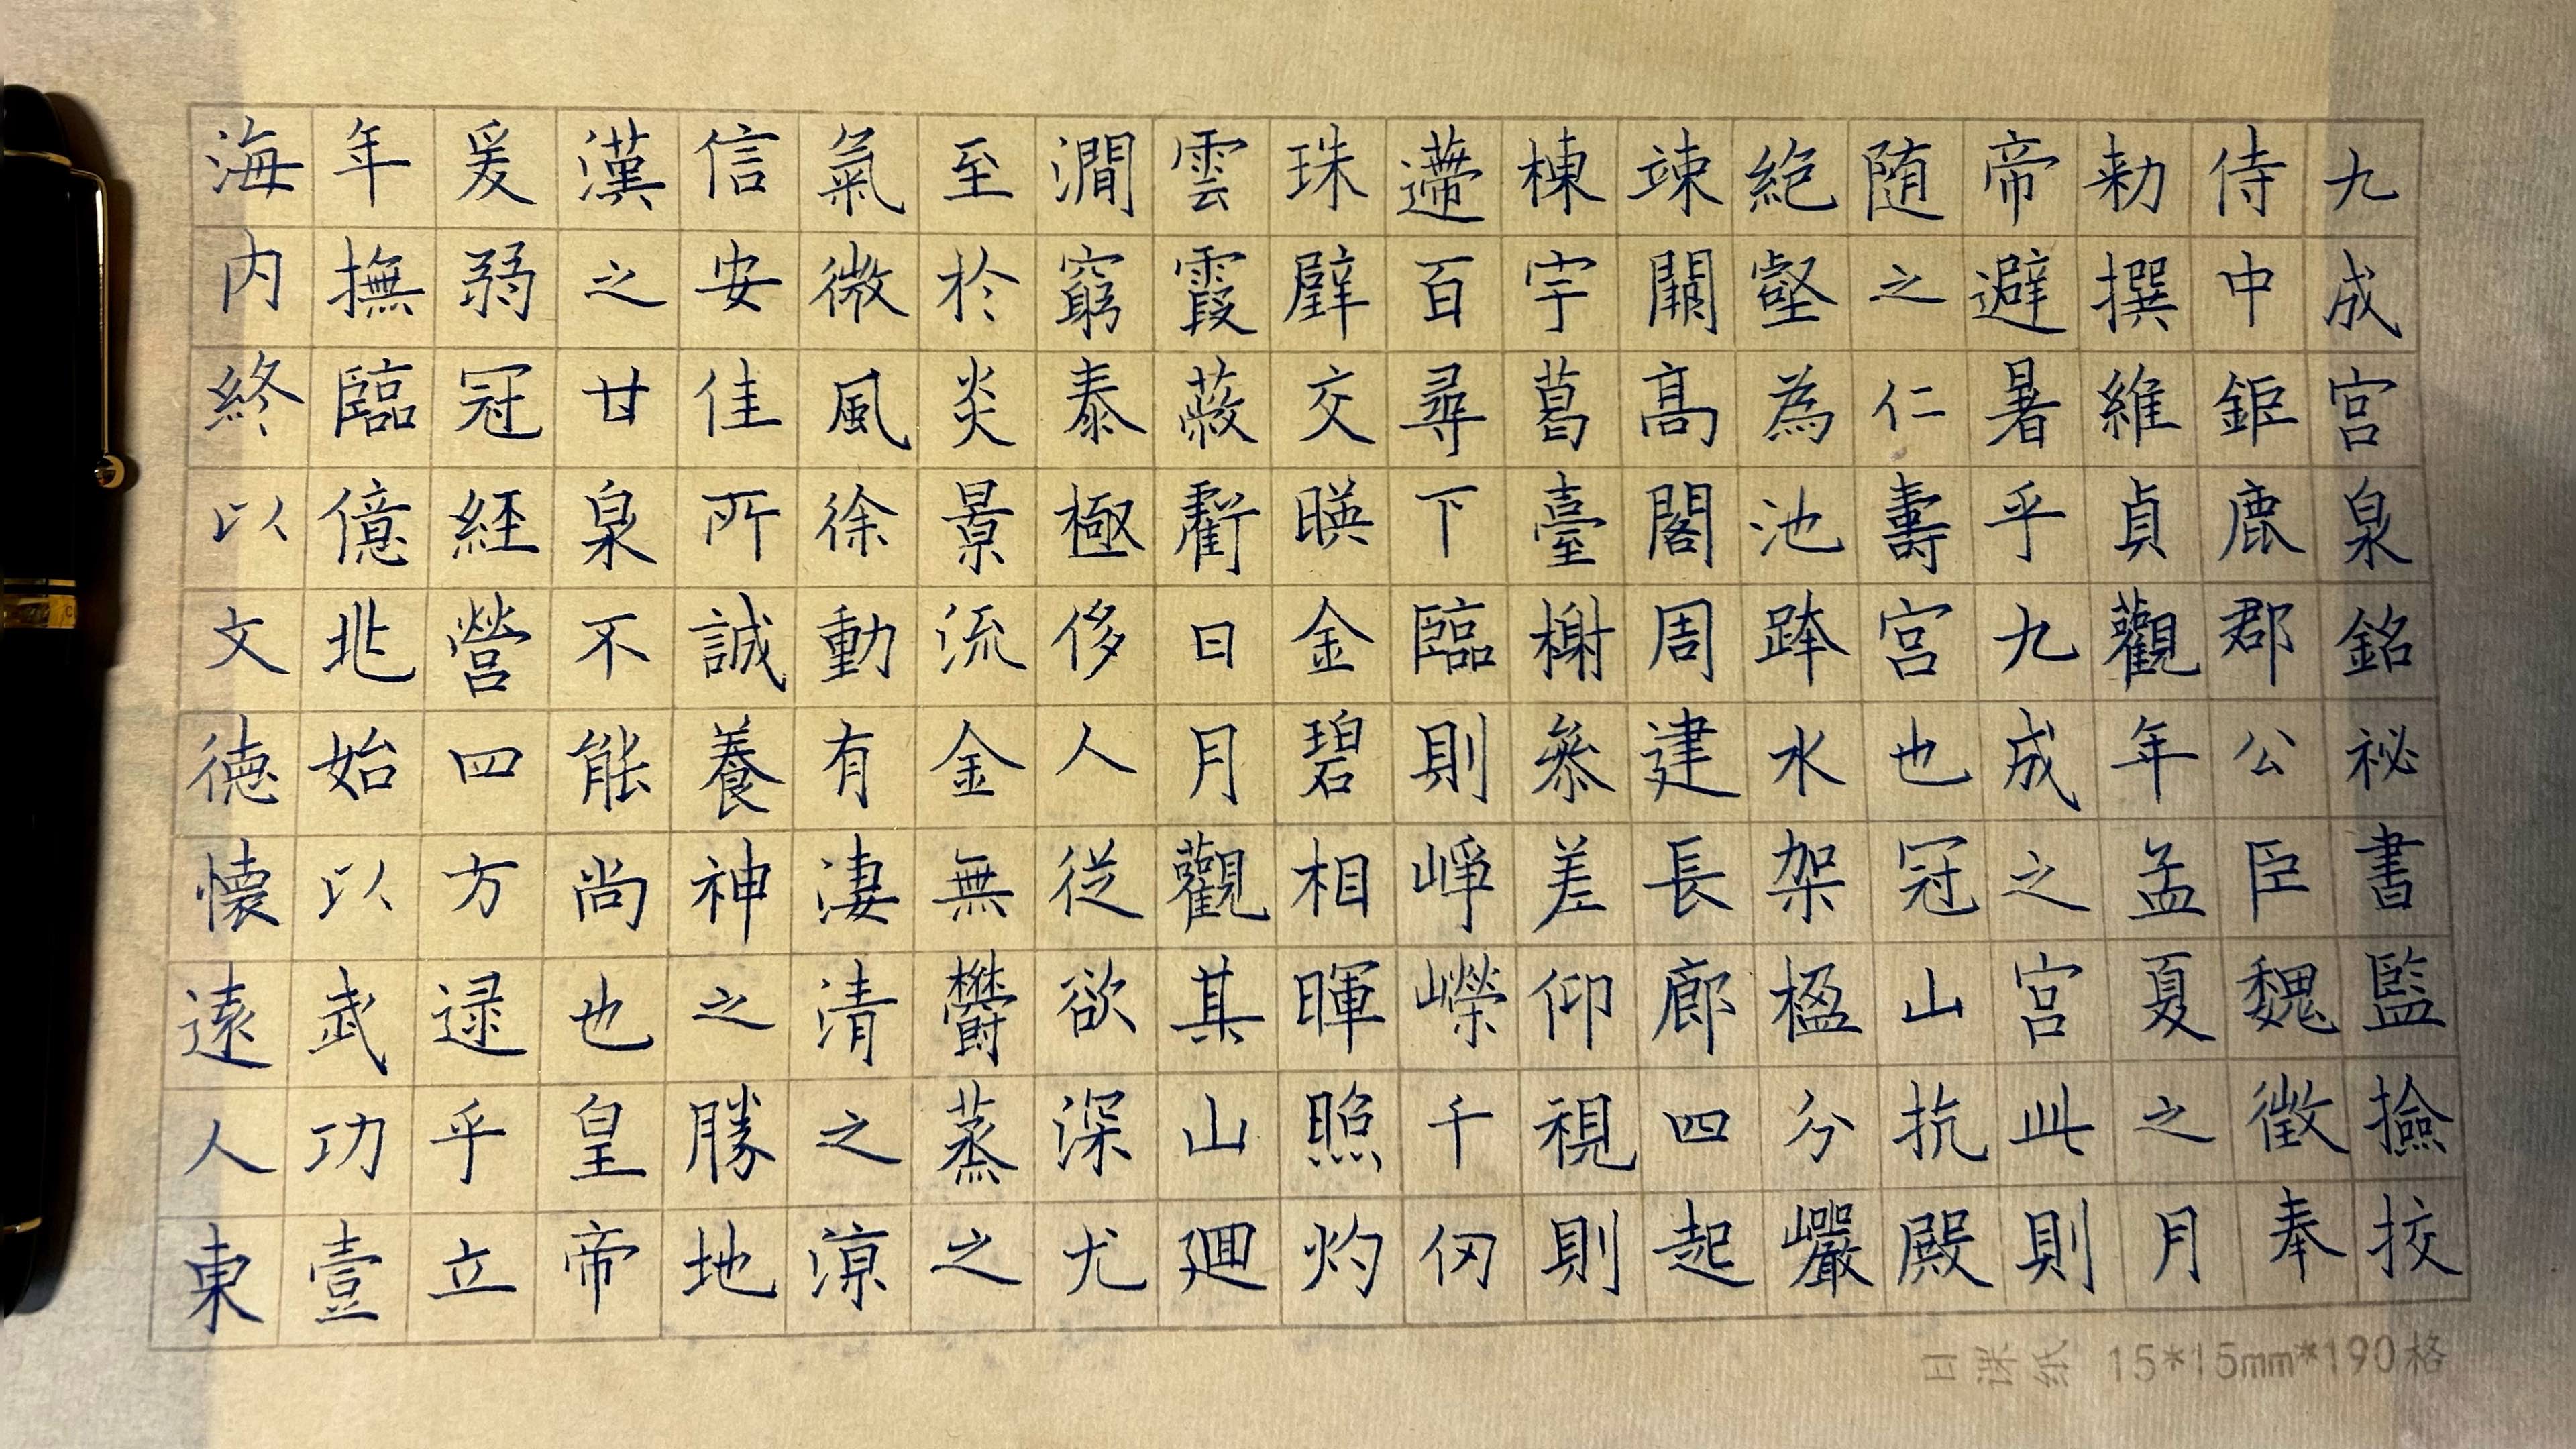 九成宮泉銘祕書監撿挍
侍中鉅鹿郡公臣魏徵奉
勅撰維貞觀年孟夏之月
帝避暑乎九成之宮此則
随之仁壽宮也冠山抗殿
絶壑為池跨水架楹分巖
竦闕高閣周建長廊四起
棟宇葛臺榭叅差仰視則
遰百尋下臨則崢嶸千仞
珠璧交暎金碧相暉照灼
雲霞蔽虧日月觀其山廻
澗窮泰極侈人從欲深尤
至於炎景流金無鬱蒸之
氣微風徐動有淒清之凉
信安佳所誠養神之勝地
漢之甘泉不能尚也皇帝
爰弱冠經營四方逯乎立
年撫臨億兆始以武功壹
海内終以文德懷遠人東
日课纸 15*15mm*190格